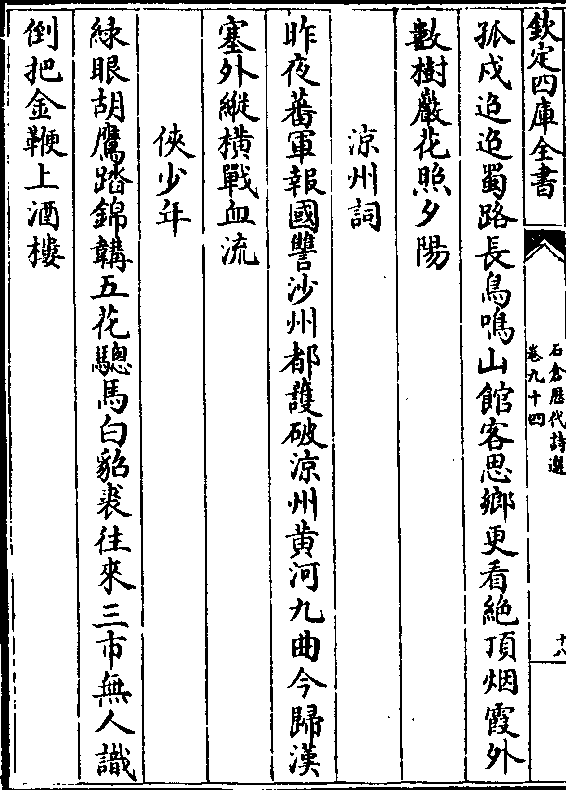 欽定四庫全書
石倉歴代詩選
卷九十四
十八
孤戍迢迢蜀路長鳥鳴山館客思鄉更看絶頂烟霞外
數樹巖花照夕陽
涼州詞
昨夜蕃軍報國讐沙州都護破涼州黄河九曲今歸漢
塞外縱横戰血流
俠少年
緑眼胡鷹踏錦鞲五花驄馬白貂裘往來三市無人識
倒把金鞭上酒樓